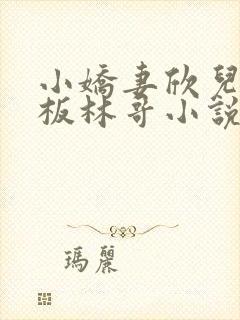 小嬌妻欣兒
板林哥小說
瑪麗